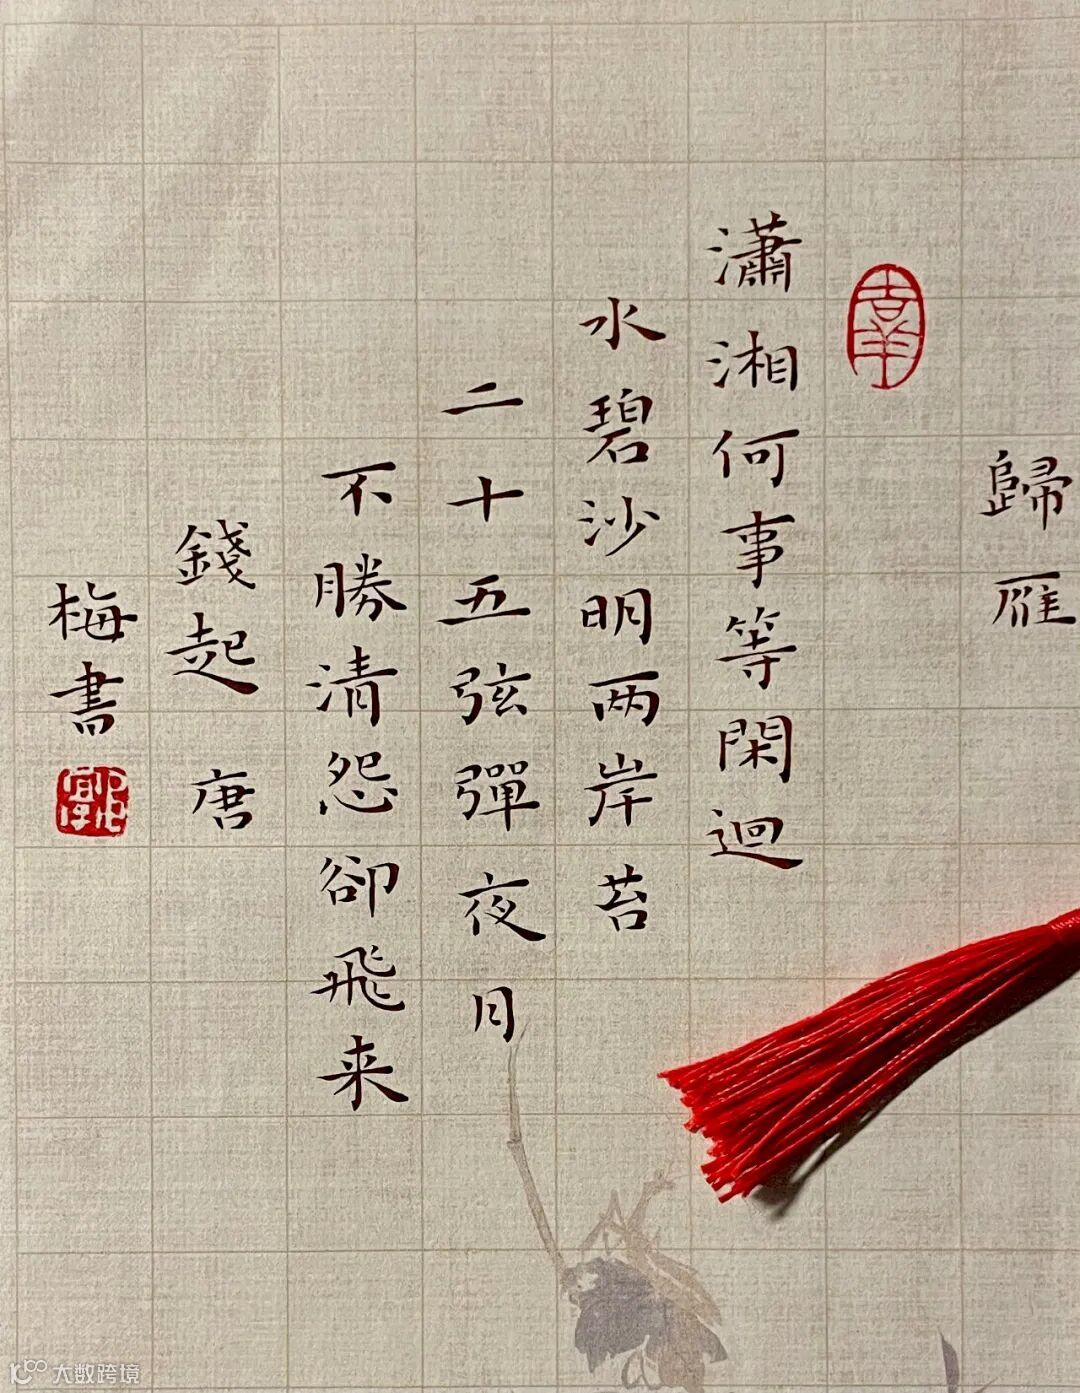 歸雁
瀟湘何事等閑迴
水碧沙明两岸苔
二十五弦彈夜月
不勝清怨卻飛来
錢起 唐
梅書
大数跨境